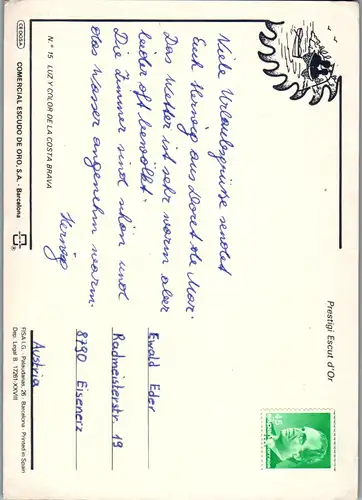 Viele Urlaubsgrüsse sendet
Euch Herwig aus Lloret de Mar.
Das Wetter ist sehr warm aber
leider oft bewölkt.
Die Zimmer sind schön und
das Wasser angenehm warm.
Herwig
N.º 15 LUZ Y COLOR DE LA COSTA BRAVA
COMERCIAL ESCUDO DE ORO, S.A. - Barcelona
CEDOSA
Prestigi Escut d'Or
45
Ewald Eder
Radmeisterstr. 19
8790 Eisenerz
Austria
FISA I.G. - Palaudarias, 26 - Barcelona - Printed in Spain
Dep. Legal B. 17261-XXVIII